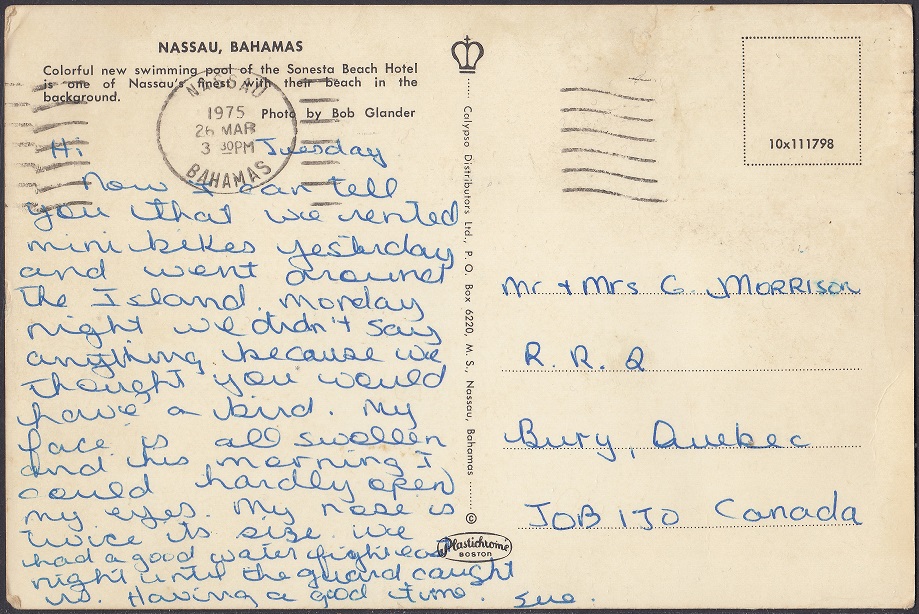 NASSAU, BAHAMAS
Colorful new swimming pool of the Sonesta Beach Hotel
is one of Nassau's finest with their beach in the
background.
Photo by Bob Glander
NASSAU
1975
26 MAR
3 30PM
BAHAMAS
Hi Tuesday
Now I can tell
you that we rented
mini bikes yesterday
and went around
the Island. Monday
night we didn't say
anything because we
thought you would
have a bird. My
face is all swollen
and this morning I
could hardly open
my eyes. My nose is
twice its size. We
had a good water fight last
night until the guard caught
us. Having a good time. Sue.
Calypso Distributors Ltd., P. O. Box 6220, M. S., Nassau, Bahamas
©
Plastichrome
BOSTON
10x111798
Mr + Mrs G. MORRISON
R. R. 2
Bury, Quebec
JOB 1J0 Canada